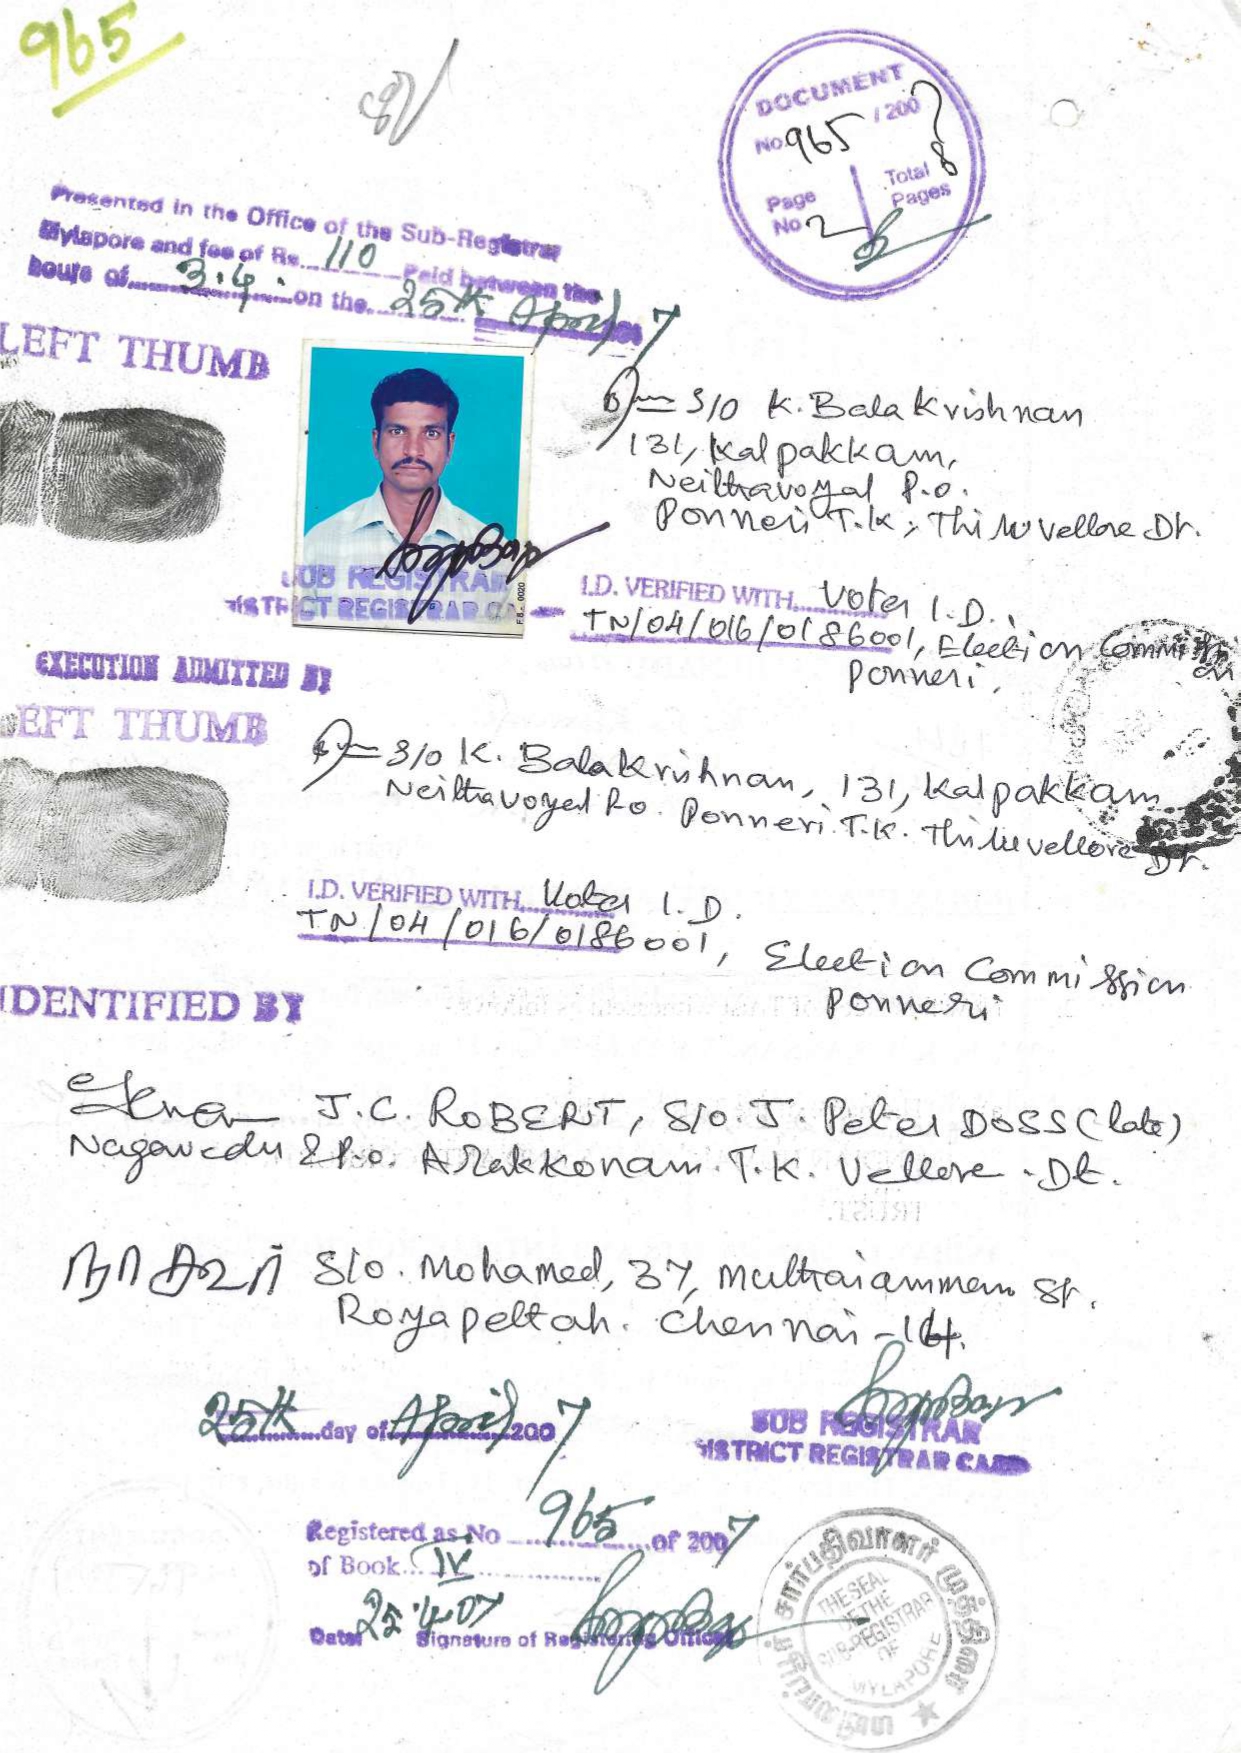 965
DOCUMENT
No. 965 / 2007
Page No 2
Total Pages 8
Presented in the Office of the Sub-Registrar
Mylapore and fee of Rs. 110 Paid between the
hours of 3.4. on the 25th April 7
LEFT THUMB
S/O K. Balakrishnan
131, Kalpakkam,
Neithavoyal P.O.
Ponneri T.K, Thiruvellore Dt.
SUB REGISTRAR
DISTRICT REGISTRAR CA
F.S.- 0020
I.D. VERIFIED WITH Voter I.D.
TN/04/016/0186001, Election Commission
Ponneri,
EXECUTION ADMITTED BY
LEFT THUMB
S/O K. Balakrishnan, 131, Kalpakkam
Neithavoyal P.O. Ponneri T.K. Thiruvellore Dt.
I.D. VERIFIED WITH Voter I.D.
TN/04/016/0186001, Election Commission
Ponneri
IDENTIFIED BY
J.C. ROBERT, S/O. J. Peter DOSS (late)
Nagavedu & P.O. Arakkonam T.K. Vellore Dt.
நாகூர் S/O. Mohamed, 37, Muthaiamman St.
Royapettah. Chennai-14.
25th day of April 2007
SUB REGISTRAR
DISTRICT REGISTRAR CADRE
Registered as No 965 of 2007
of Book IV
Date 25.4.07 Signature of Registering Officer
சார்பதிவாளர் முத்திரை
மயிலாப்பூர்
THE SEAL
OF THE
SUB-REGISTRAR
OF
MYLAPORE